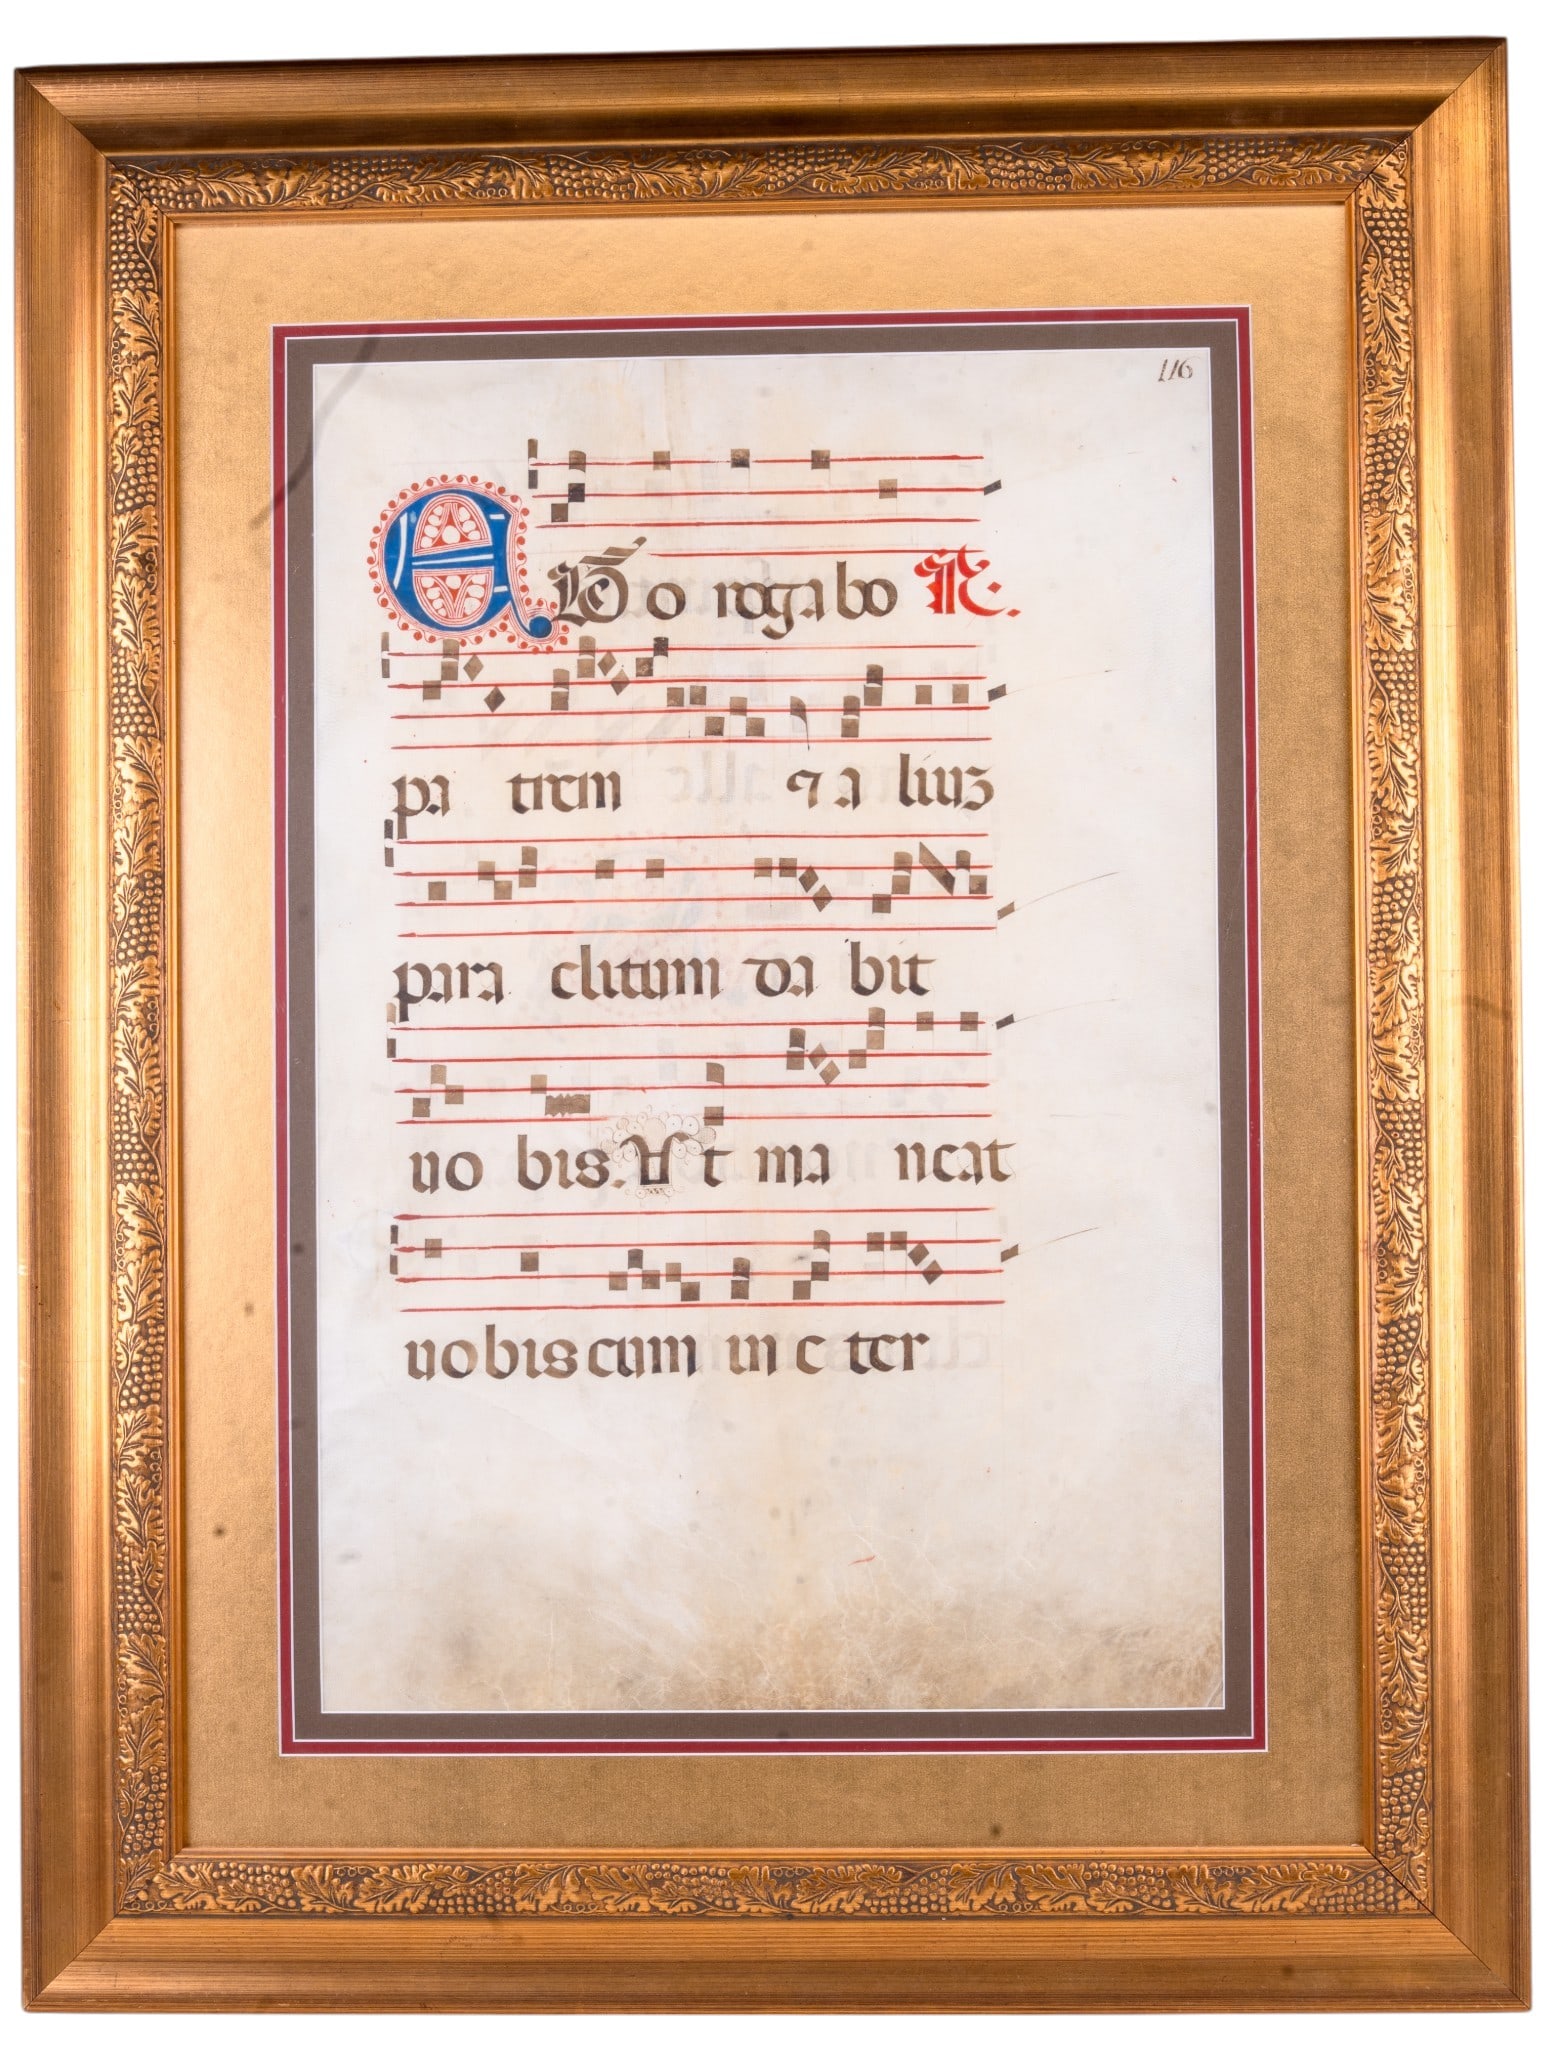 116
Ego rogabo R.
pa trem ꝛ a lium
para clitum da bit
uo bis. Ut ma neat
uobiscum in e ter